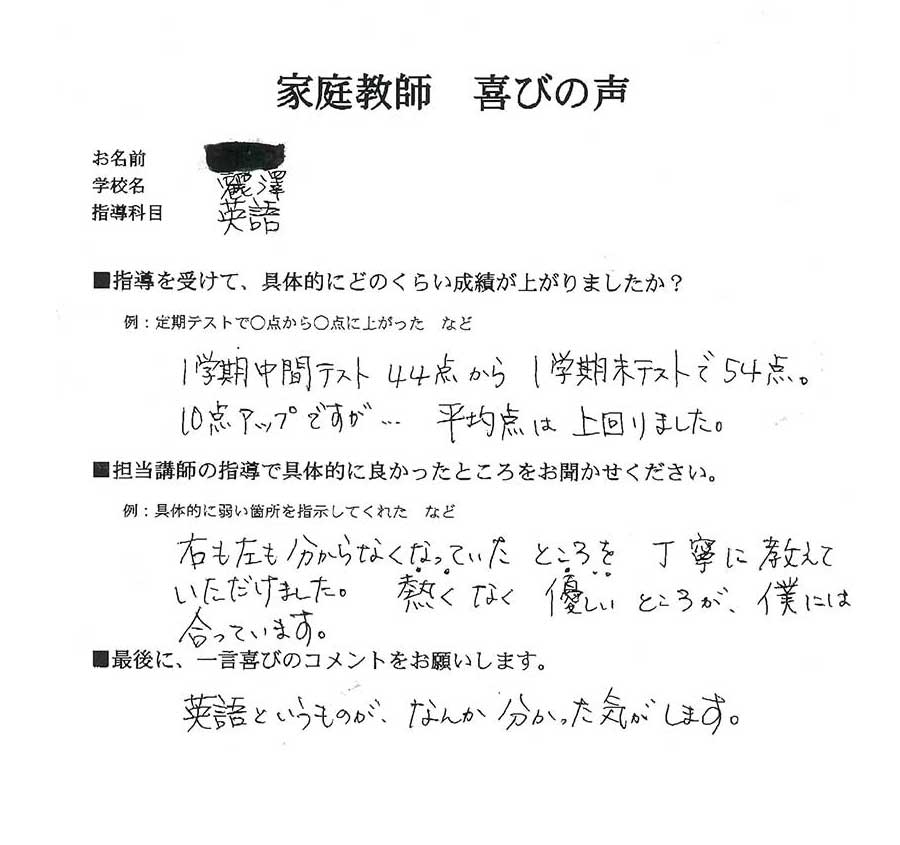 家庭教師　喜びの声
お名前
学校名　麗澤
指導科目　英語
■指導を受けて、具体的にどのくらい成績が上がりましたか？
例：定期テストで〇点から〇点に上がった　など
1学期中間テスト 44点から 1学期末テストで54点。
10点アップですが… 平均点は上回りました。
■担当講師の指導で具体的に良かったところをお聞かせください。
例：具体的に弱い箇所を指示してくれた　など
右も左も分からなくなっていたところを丁寧に教えて
いただけました。熱くなく優しいところが、僕には
合っています。
■最後に、一言喜びのコメントをお願いします。
英語というものが、なんか分かった気がします。